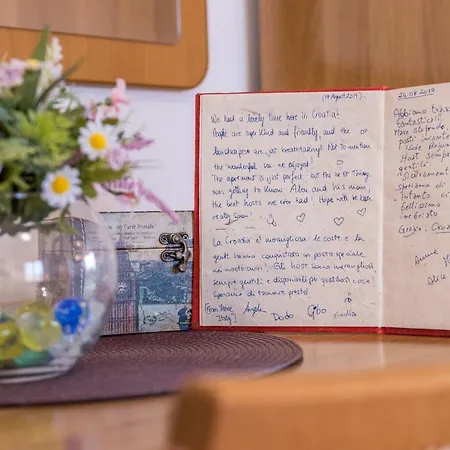 (19 August 2019)
We had a lovely time here in Croatia!
People are super kind and friendly, and the
landscapes are just breathtaking! Not to mention
the wonderful sea we enjoyed!
The apartment is just perfect but the best thing
was getting to know Alen and his mum,
the best hosts we ever had! Hope we'll be back
really soon!
La Croazia è meravigliosa: le coste e la
gente hanno conquistato un posto speciale
nei nostri cuori. Gli host sono meravigliosi
sempre gentili e disponibili per qualsiasi cosa!
Speriamo di tornare presto!
(From Rome, Italy) Angela Dado Gibo Giulia
24.08.2019
Abbiamo
fantastici!!
Mare stupendo,
posti incante
Host sempre
gentili e
Speriamo di
Grazie, Croa
Anna
Alice